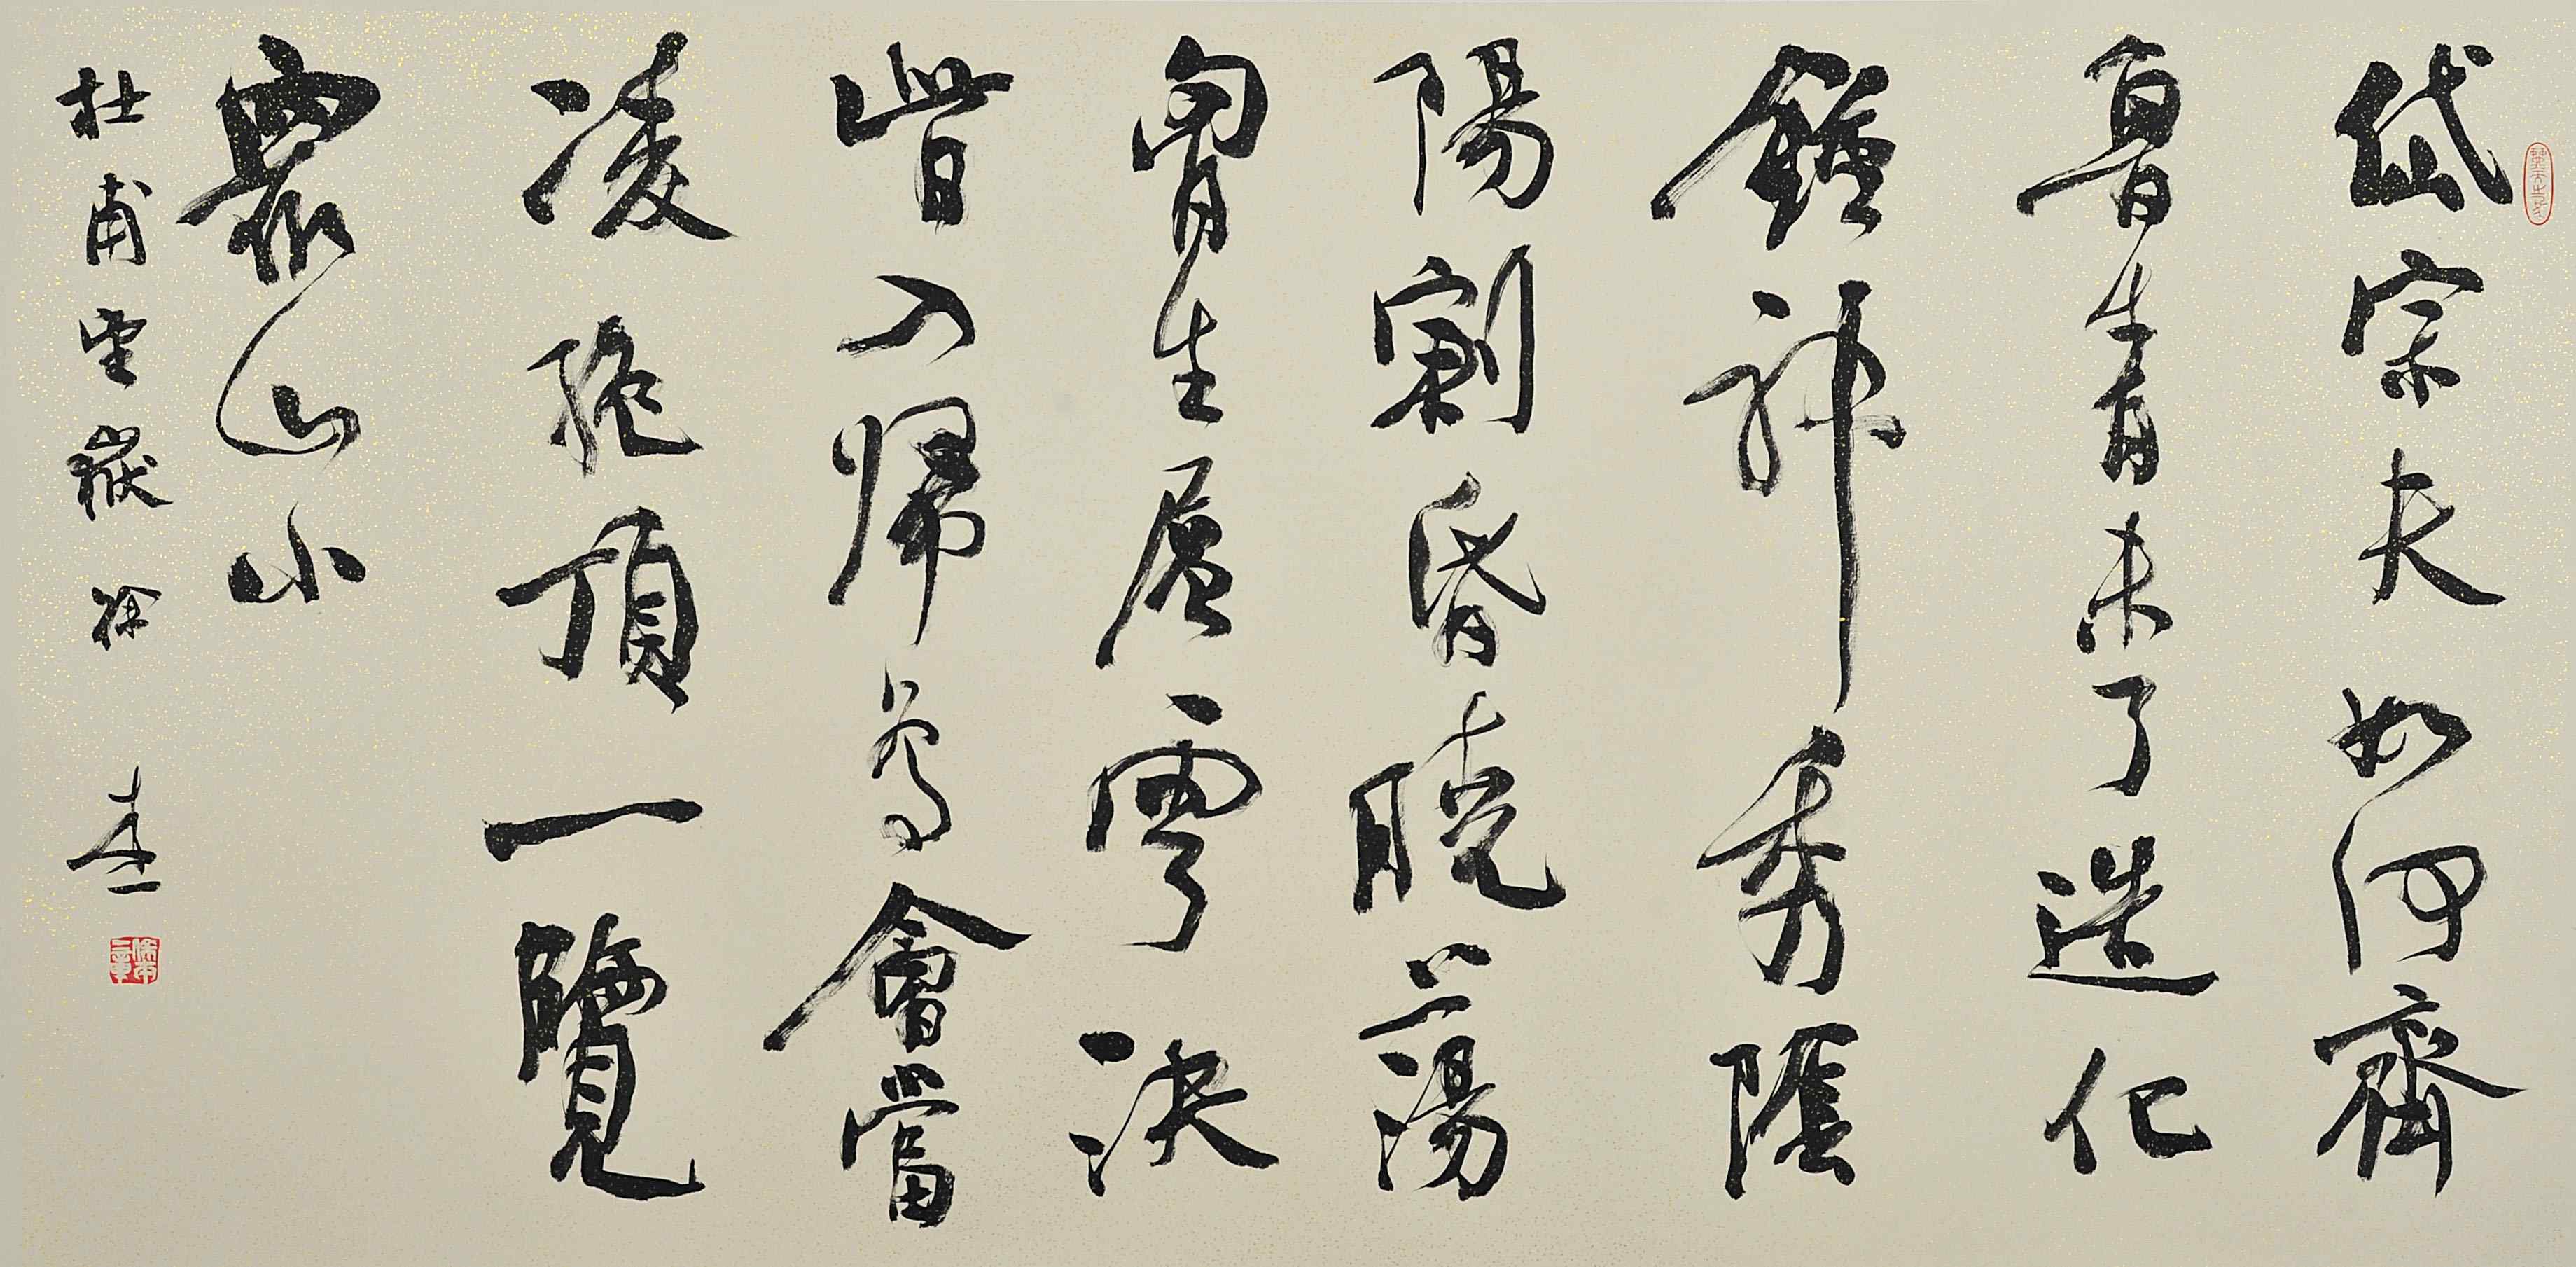 岱宗夫如何齊
魯青未了造化
鍾神秀陰
陽割昏曉蕩
胷生層雲決
眥入歸鳥會當
凌絕頂一覽
眾山小
杜甫望嶽 徐本一